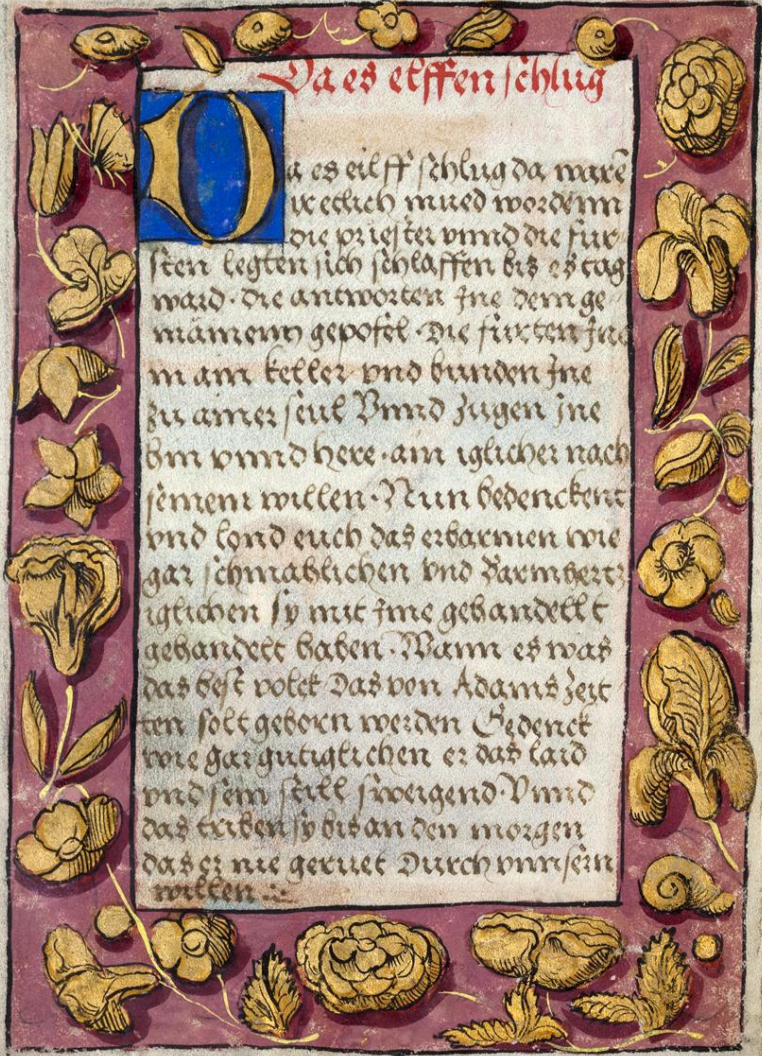 Da es elffen schlug
Da es eilff schlug da warē
ir etlich mued wordenn
die priester vnnd die fur
sten legten sich schlaffen bis es tag
ward · die antworten Jne dem ge
mainenn gepofel · Die furten Jne
in ain keller vnd bunden Jne
zu ainer seul Vnnd zugen Jne
hin vnnd here · ain iglicher nach
seinem willen · Nun bedenckent
vnd lond euch das erbarmen wie
gar schmahlichen vnd
iglichen sy mit Jme gehandellt
gehandelt haben · Wann es was
das best volck Das von Adams zeit
ten solt geborn werden Gedenck
wie gar gutiglichen er das laid
vnd sein still sweigend · Vnnd
das triben sy bis an den morgen
das er nie geruet Durch vnnsern
willen